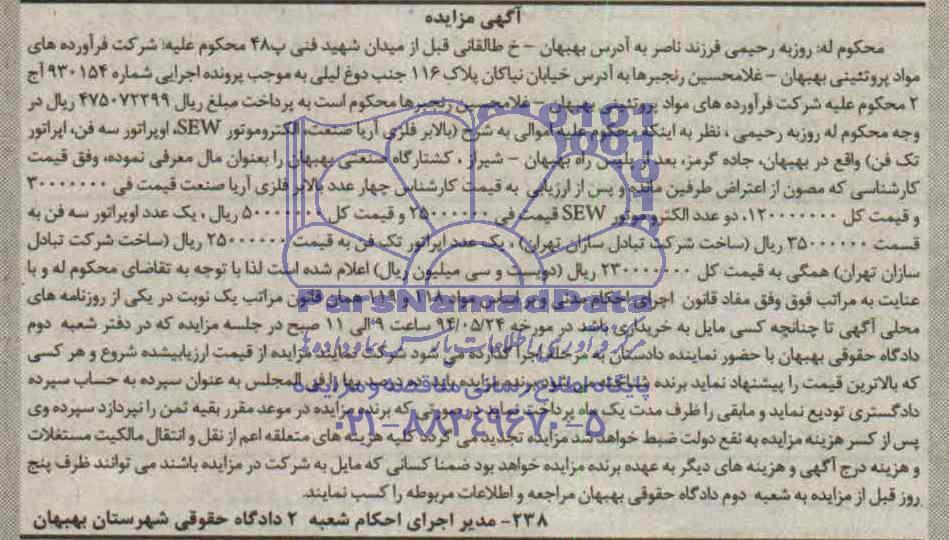 آگهی مزایده
محکوم له: روزبه رحیمی فرزند ناصر به آدرس بهبهان - خ طالقانی قبل از میدان شهید فنی پ۴۸ محکوم علیه: شرکت فرآورده های
مواد پروتئینی بهبهان - غلامحسین رنجبرها به آدرس خیابان نیاکان پلاک ۱۱۶ جنب دوغ لیلی به موجب پرونده اجرایی شماره ۹۳۰۱۵۴ آج
۲ محکوم علیه شرکت فرآورده های مواد پروتئینی بهبهان - غلامحسین رنجبرها محکوم است به پرداخت مبلغ ریال ۴۷۵۰۷۲۲۹۹ ریال در
وجه محکوم له روزبه رحیمی ، نظر به اینکه محکوم علیه اموالی به شرح (بالابر فلزی آریا صنعت، الکتروموتور SEW، اوپراتور سه فن، اپراتور
تک فن) واقع در بهبهان، جاده گرمز، بعد از پلیس راه بهبهان - شیراز ، کشتارگاه صنعتی بهبهان را بعنوان مال معرفی نموده، وفق قیمت
کارشناسی که مصون از اعتراض طرفین مانده و پس از ارزیابی به قیمت کارشناس چهار عدد بالابر فلزی آریا صنعت قیمت فی ۳۰۰۰۰۰۰۰
و قیمت کل ۱۲۰۰۰۰۰۰۰، دو عدد الکتروموتور SEW قیمت فی ۲۵۰۰۰۰۰۰ و قیمت کل ۵۰۰۰۰۰۰۰ ریال ، یک عدد اوپراتور سه فن به
قسمت ۳۵۰۰۰۰۰۰ ریال (ساخت شرکت تبادل سازان تهران) ، یک عدد اپراتور تک فن به قیمت ۲۵۰۰۰۰۰۰ ریال (ساخت شرکت تبادل
سازان تهران) همگی به قیمت کل ۲۳۰۰۰۰۰۰۰ ریال (دویست و سی میلیون ریال) اعلام شده است لذا با توجه به تقاضای محکوم له و با
عنایت به مراتب فوق وفق مفاد قانون اجرای احکام مدنی و بر اساس مواد ۱۱۸ و ۱۱۹ همان قانون مراتب یک نوبت در یکی از روزنامه های
محلی آگهی تا چنانچه کسی مایل به خریداری باشد در مورخه ۹۴/۰۵/۲۴ ساعت ۹ الی ۱۱ صبح در جلسه مزایده که در دفتر شعبه دوم
دادگاه حقوقی بهبهان با حضور نماینده دادستان به مرحله اجرا گذارده می شود شرکت نمایند مزایده از قیمت ارزیابیشده شروع و هر کسی
که بالاترین قیمت را پیشنهاد نماید برنده شناخته می شود برنده مزایده باید ده درصد بها را فی المجلس به عنوان سپرده به حساب سپرده
دادگستری تودیع نماید و مابقی را ظرف مدت یک ماه پرداخت نماید در صورتی که برنده مزایده در موعد مقرر بقیه ثمن را نپردازد سپرده وی
پس از کسر هزینه مزایده به نفع دولت ضبط خواهد شد مزایده تجدید می گردد کلیه هزینه های متعلقه اعم از نقل و انتقال مالکیت مستغلات
و هزینه درج آگهی و هزینه های دیگر به عهده برنده مزایده خواهد بود ضمنا کسانی که مایل به شرکت در مزایده باشند می توانند ظرف پنج
روز قبل از مزایده به شعبه دوم دادگاه حقوقی بهبهان مراجعه و اطلاعات مربوطه را کسب نمایند.
۲۳۸- مدیر اجرای احکام شعبه ۲ دادگاه حقوقی شهرستان بهبهان
ParsNamadData
مرکز فرآوری اطلاعات پارس نماد داده ها
پایگاه اطلاع رسانی مناقصه و مزایده
۰۲۱-۸۸۳۴۹۶۷۰-۵